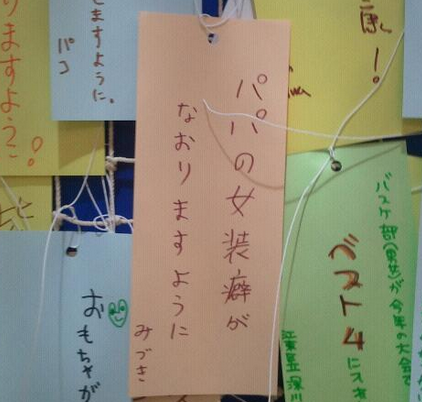 パパの女装癖が
なおりますように
みづき
康!
バスケ部(男女)が今年の大会で
ベスト4
に
江東区立深川
おもちゃが
ますように。
パコ
りますように!